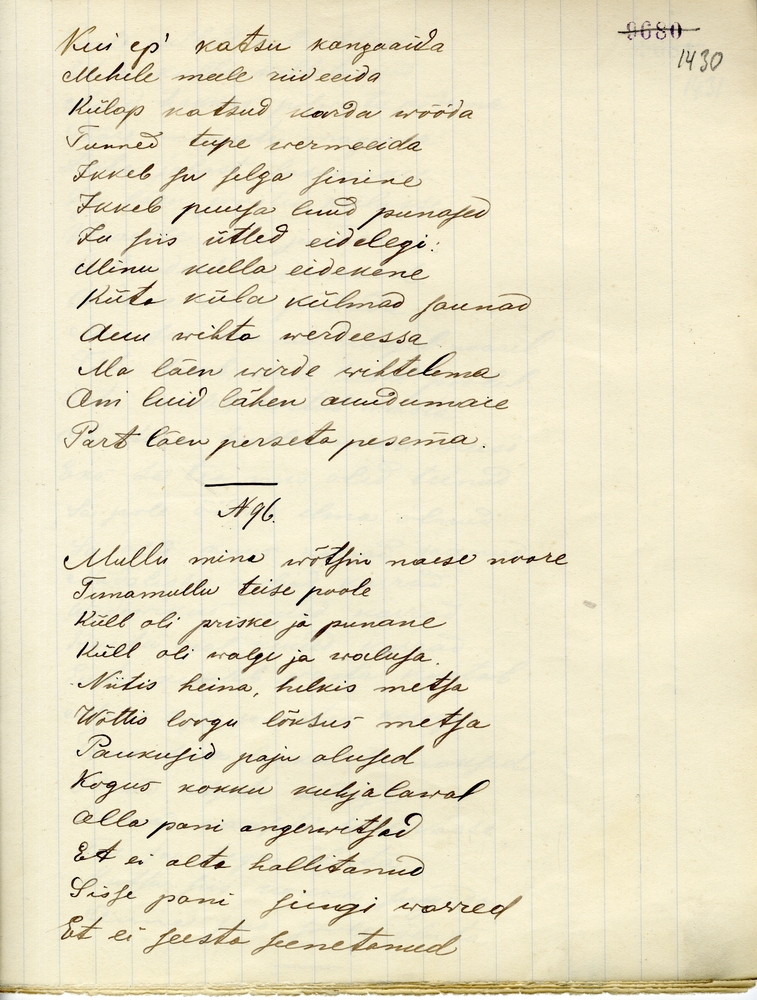 9680
1430
Kui ep' katsu kangaaida
Mehele meele riideeida
Külap katsud karda wööda
Tunned tupe wermeeida
Ikkeb su selga sinine
Ikkeb puusa luud punased
Ja siis ütled eidelegi:
Minu kulla eidekene
Küta küla külmad saunad
Auu wihta werdeessa
Ma lään wirde wihtelema
Oni luid lähen auudumaie
Part lään perseta pesema.
N 96.
Mullu mina wõtsin naese noore
Tunamullu teise poole
Küll oli priske ja punane
Küll oli walge ja walusa.
Niitis heina, helkis metsa
Wõttis loogu lõksus metsa
Paukusid paju alused
Kogus kokku kuhjalawal
Alla pani angerwitsad
Et ei alta hallitanud
Sisse pani siugi warred
Et ei seesta seenetanud